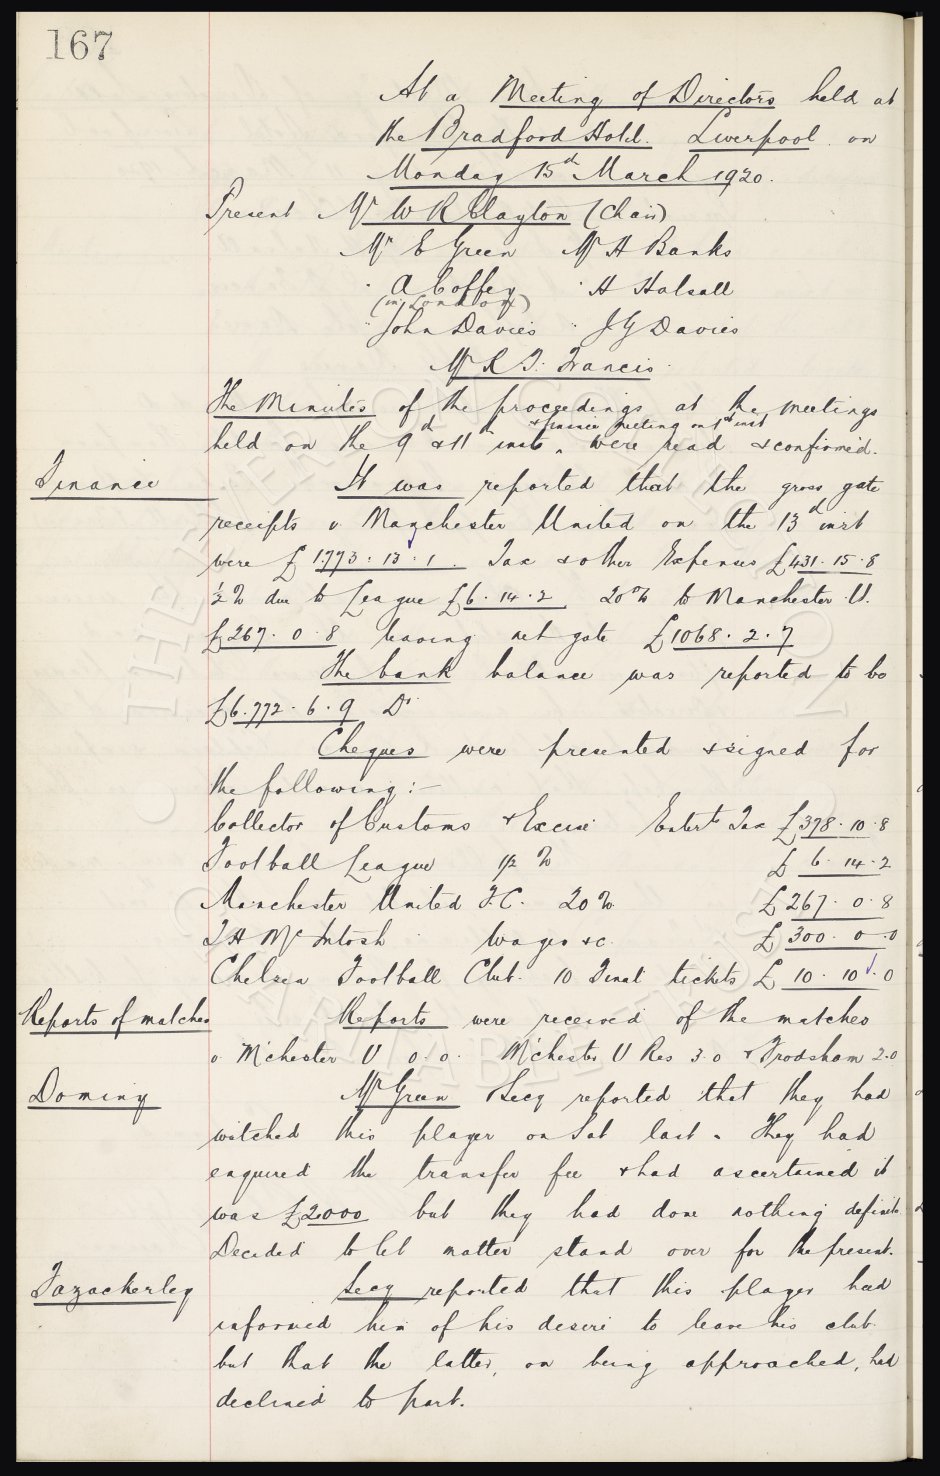 167
At a Meeting of Directors held at
the Bradford Hotel. Liverpool on
Monday 15th March 1920.
Present Mr W R Clayton (Chair)
Mr E Green Mr H Banks
" A Coffey " H Halsall
(in London)
" John Davies " J G Davies
Mr R T. Francis.
The Minutes of the proceedings at the meetings
& finance meeting on 1st inst
held on the 9th & 11th insts were read & confirmed.
Finance
It was reported that the gross gate
receipts v Manchester United on the 13th inst
were £1.773. 13. 1. Tax & other Expenses £431. 15. 8
½ % due to League £6. 14. 2 20% to Manchester U.
£267. 0. 8 leaving net gate £1068. 2. 7
The bank balance was reported to be
£6.772. 6. 9 Dr
Cheques were presented & signed for
the following:-
Collector of Customs & Excise Entert Tax £398. 10. 8
Football League 1/2 % £6. 14. 2
Manchester United F.C. 20% £267. 0. 8
T H McIntosh Wages &c. £300. 0. 0
Chelsea Football Club. 10 Final tickets £10. 10. 0
Reports of matches
Reports were received of the matches
v M'chester U 0. 0. M'chester U Res 3. 0 & Frodsham 2. 0
Doming
Mr Green & Secy reported that they had
watched this player on Sat last. They had
enquired the transfer fee & had ascertained it
was £2000 but they had done nothing definite.
Decided to let matter stand over for the present.
Tazackerley
Secy reported that this player had
informed him of his desire to leave his club.
but that the latter, on being approached, had
declined to part.
THE EVERTON COLLECTION CHARITABLE TRUST